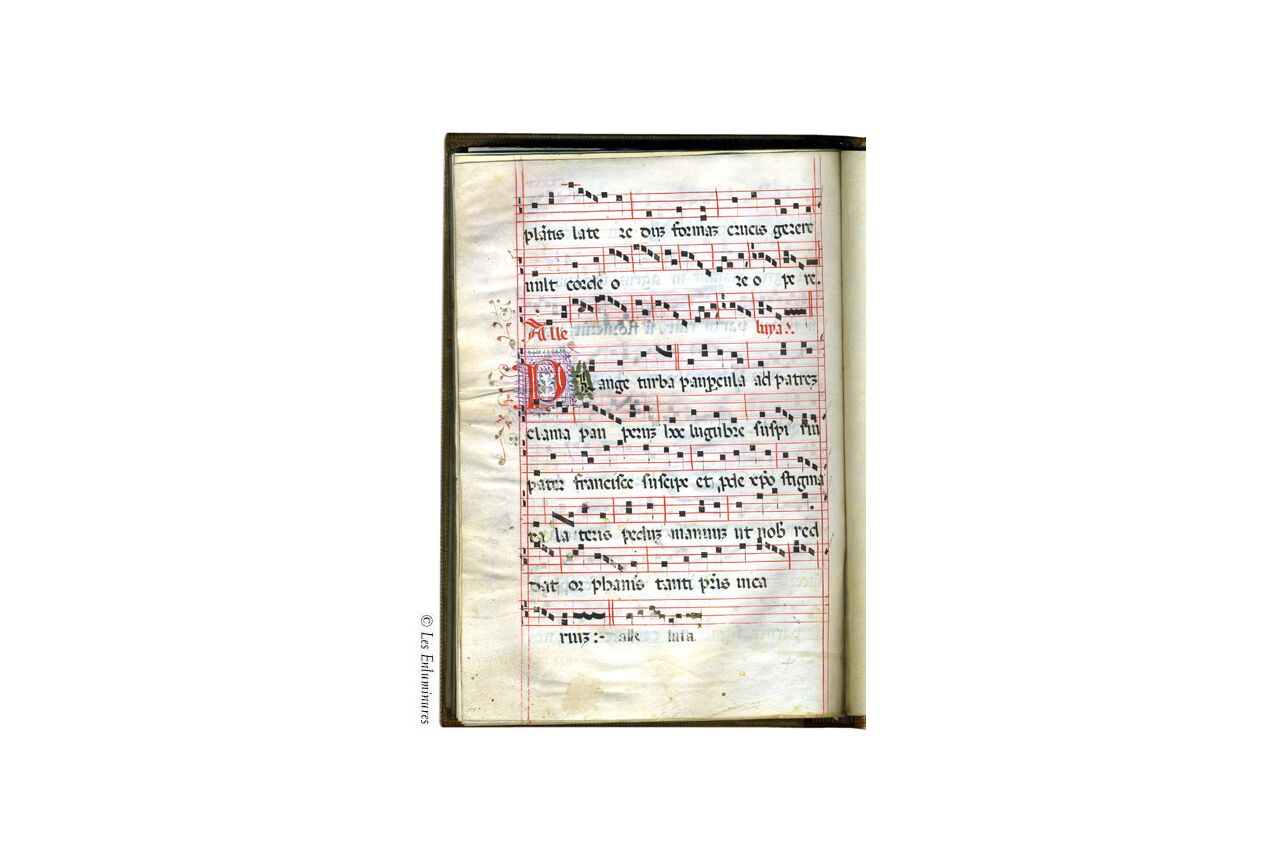 plātis late re duȝ formaȝ crucis gerere
uult corde o re o pe re.
Alle luya:.
Plange turba paup̱cula ad patreȝ
clama pau peruȝ hec lugubre suspi riū
pater francisce suscipe et p̱fer xp̄o stigma
ta la teris peduȝ manuuȝ ut nob̄ red
dat or phanis tanti pr̄is uica
riuȝ:- alle luia
© Les Enluminures